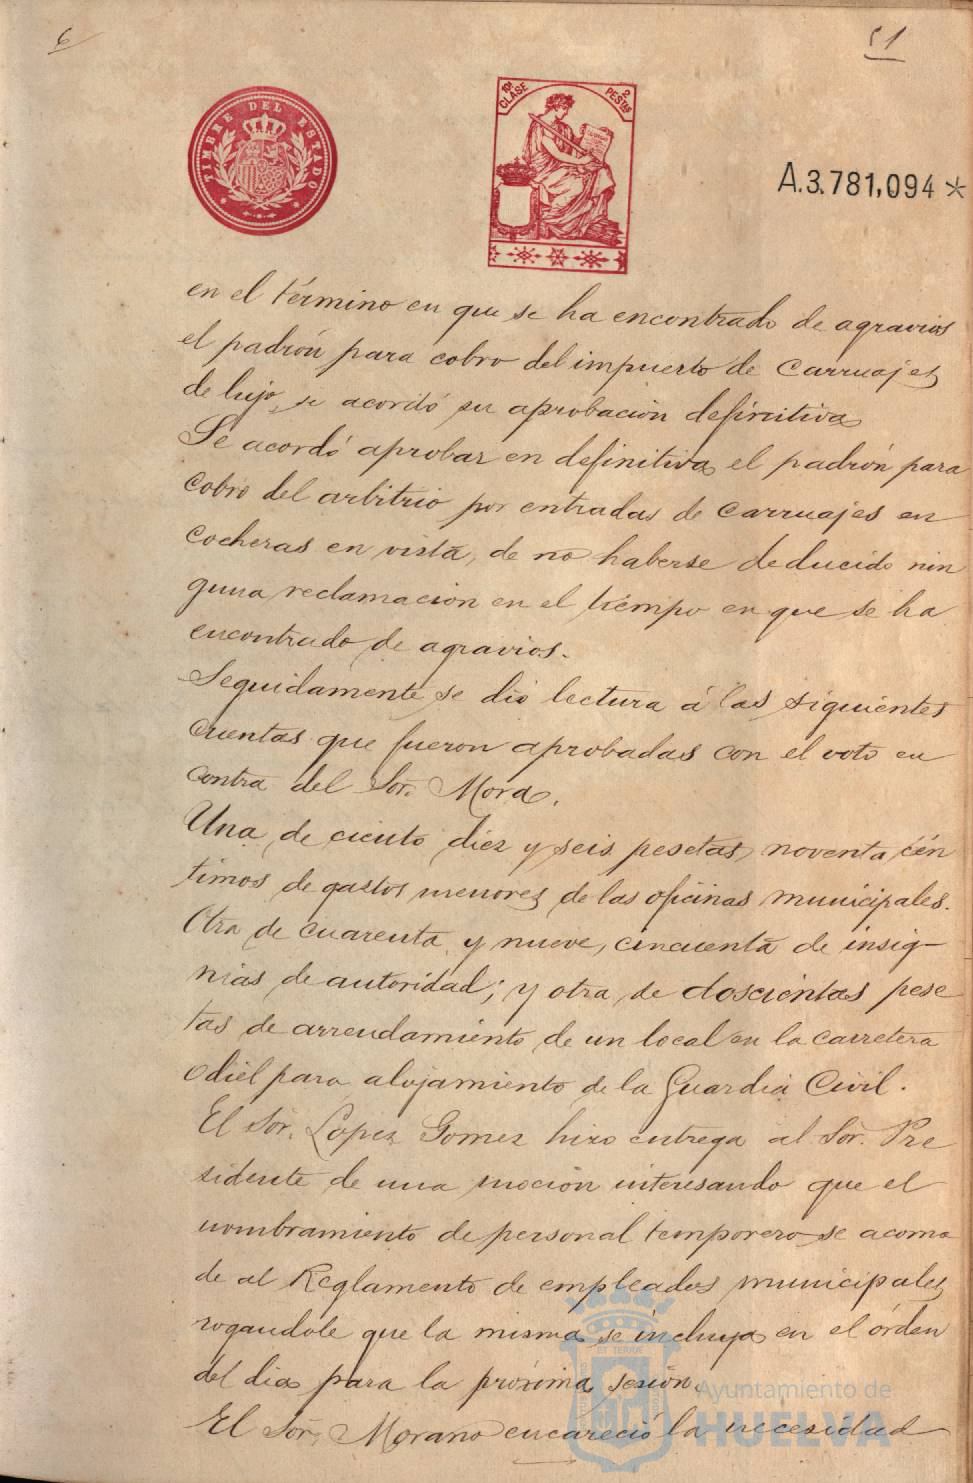 6
51
TIMBRE DEL ESTADO
10ª CLASE
2 PESTAS
A.3.781,094*
en el término en que se ha encontrado de agravios
el padrón para cobro del impuesto de Carruajes
de lujo, se acordó su aprobación definitiva
Se acordó aprobar en definitiva el padrón para
cobro del arbitrio por entradas de Carruajes en
cocheras en vista, de no haberse deducido nin
guna reclamacion en el tiempo en que se ha
encontrado de agravios.
Seguidamente se dió lectura á las siguientes
cuentas que fueron aprobadas con el voto en
contra del Sor. Mora.
Una de ciento diez y seis pesetas noventa cén
timos de gastos menores de las oficinas municipales.
Otra de cuarenta y nueve, cincuenta de insig-
nias de autoridad; y otra de doscientas pese
tas de arrendamiento de un local en la carretera
Odiel para alojamiento de la Guardia Civil.
El Sor. Lopez Gomez hizo entrega al Sor. Pre
sidente de una mocion interesando que el
nombramiento de personal temporero se acomo
de al Reglamento de empleados municipales
rogandole que la misma se incluya en el órden
del dia para la próxima sesión.
El Sor. Morano encareció la necesidad
Ayuntamiento de
HUELVA